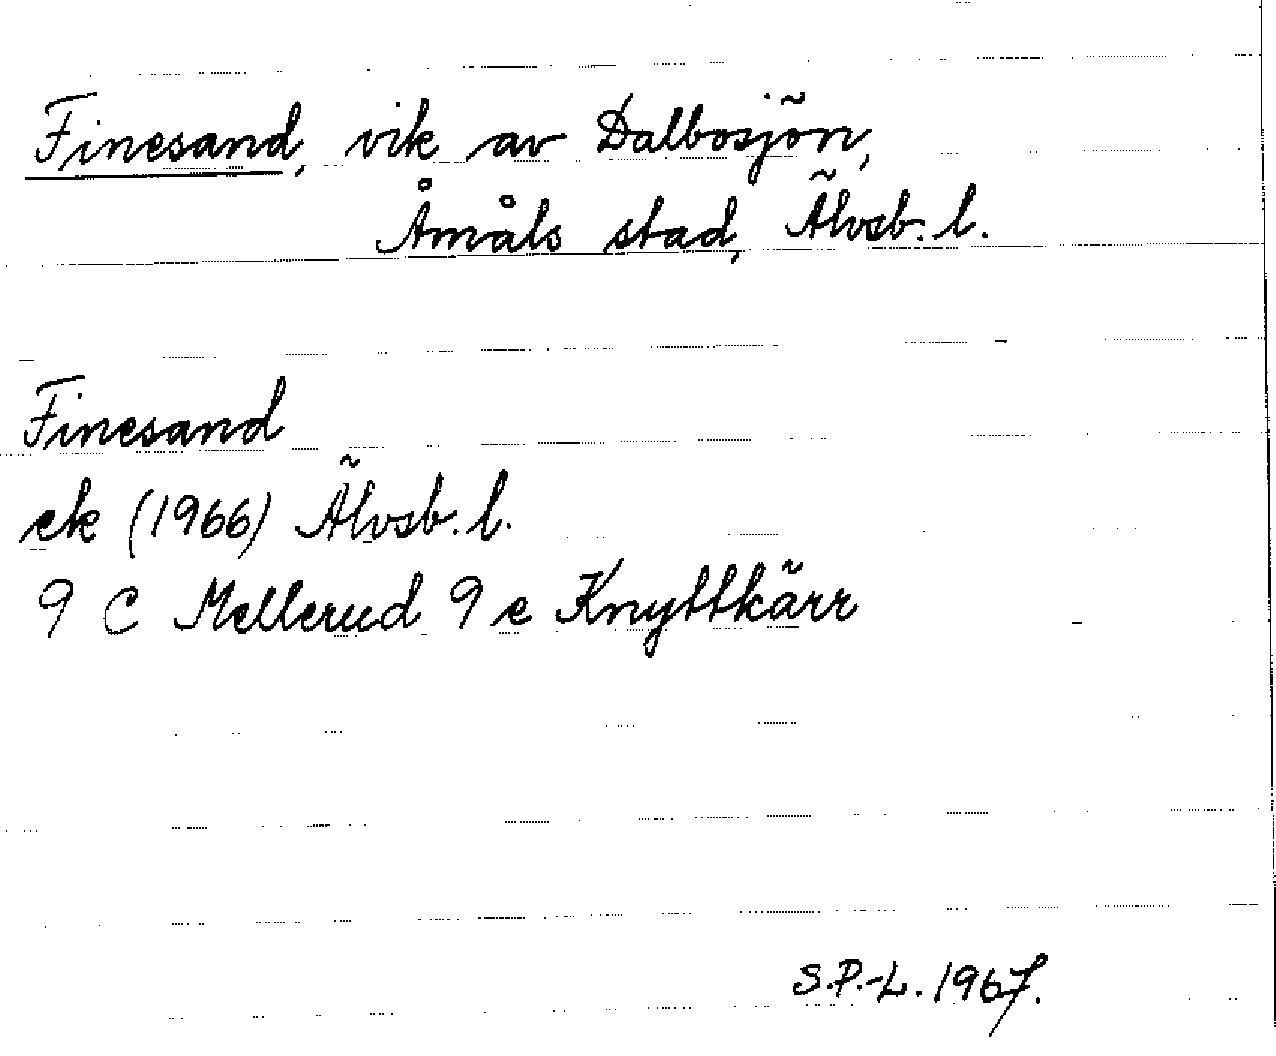 Finesand, vik av Dalbosjön,
Åmåls stad, Älvsb. l.
Finesand
ek (1966) Älvsb. l.
9 C Mellerud 9 e Knyttkärr
S.P.-L. 1967.